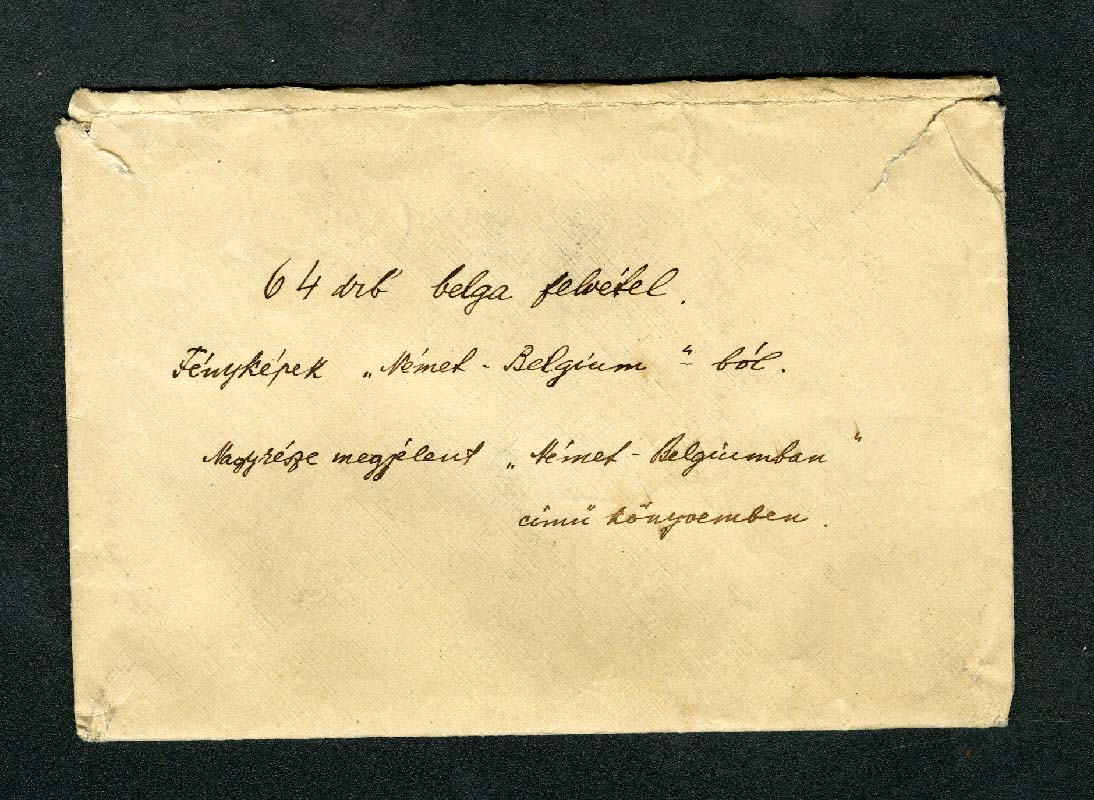 64 drb belga felvétel.
Fényképek „Német-Belgium"-ból.
Nagyrésze megjelent „Német-Belgiumban"
című könyvemben.